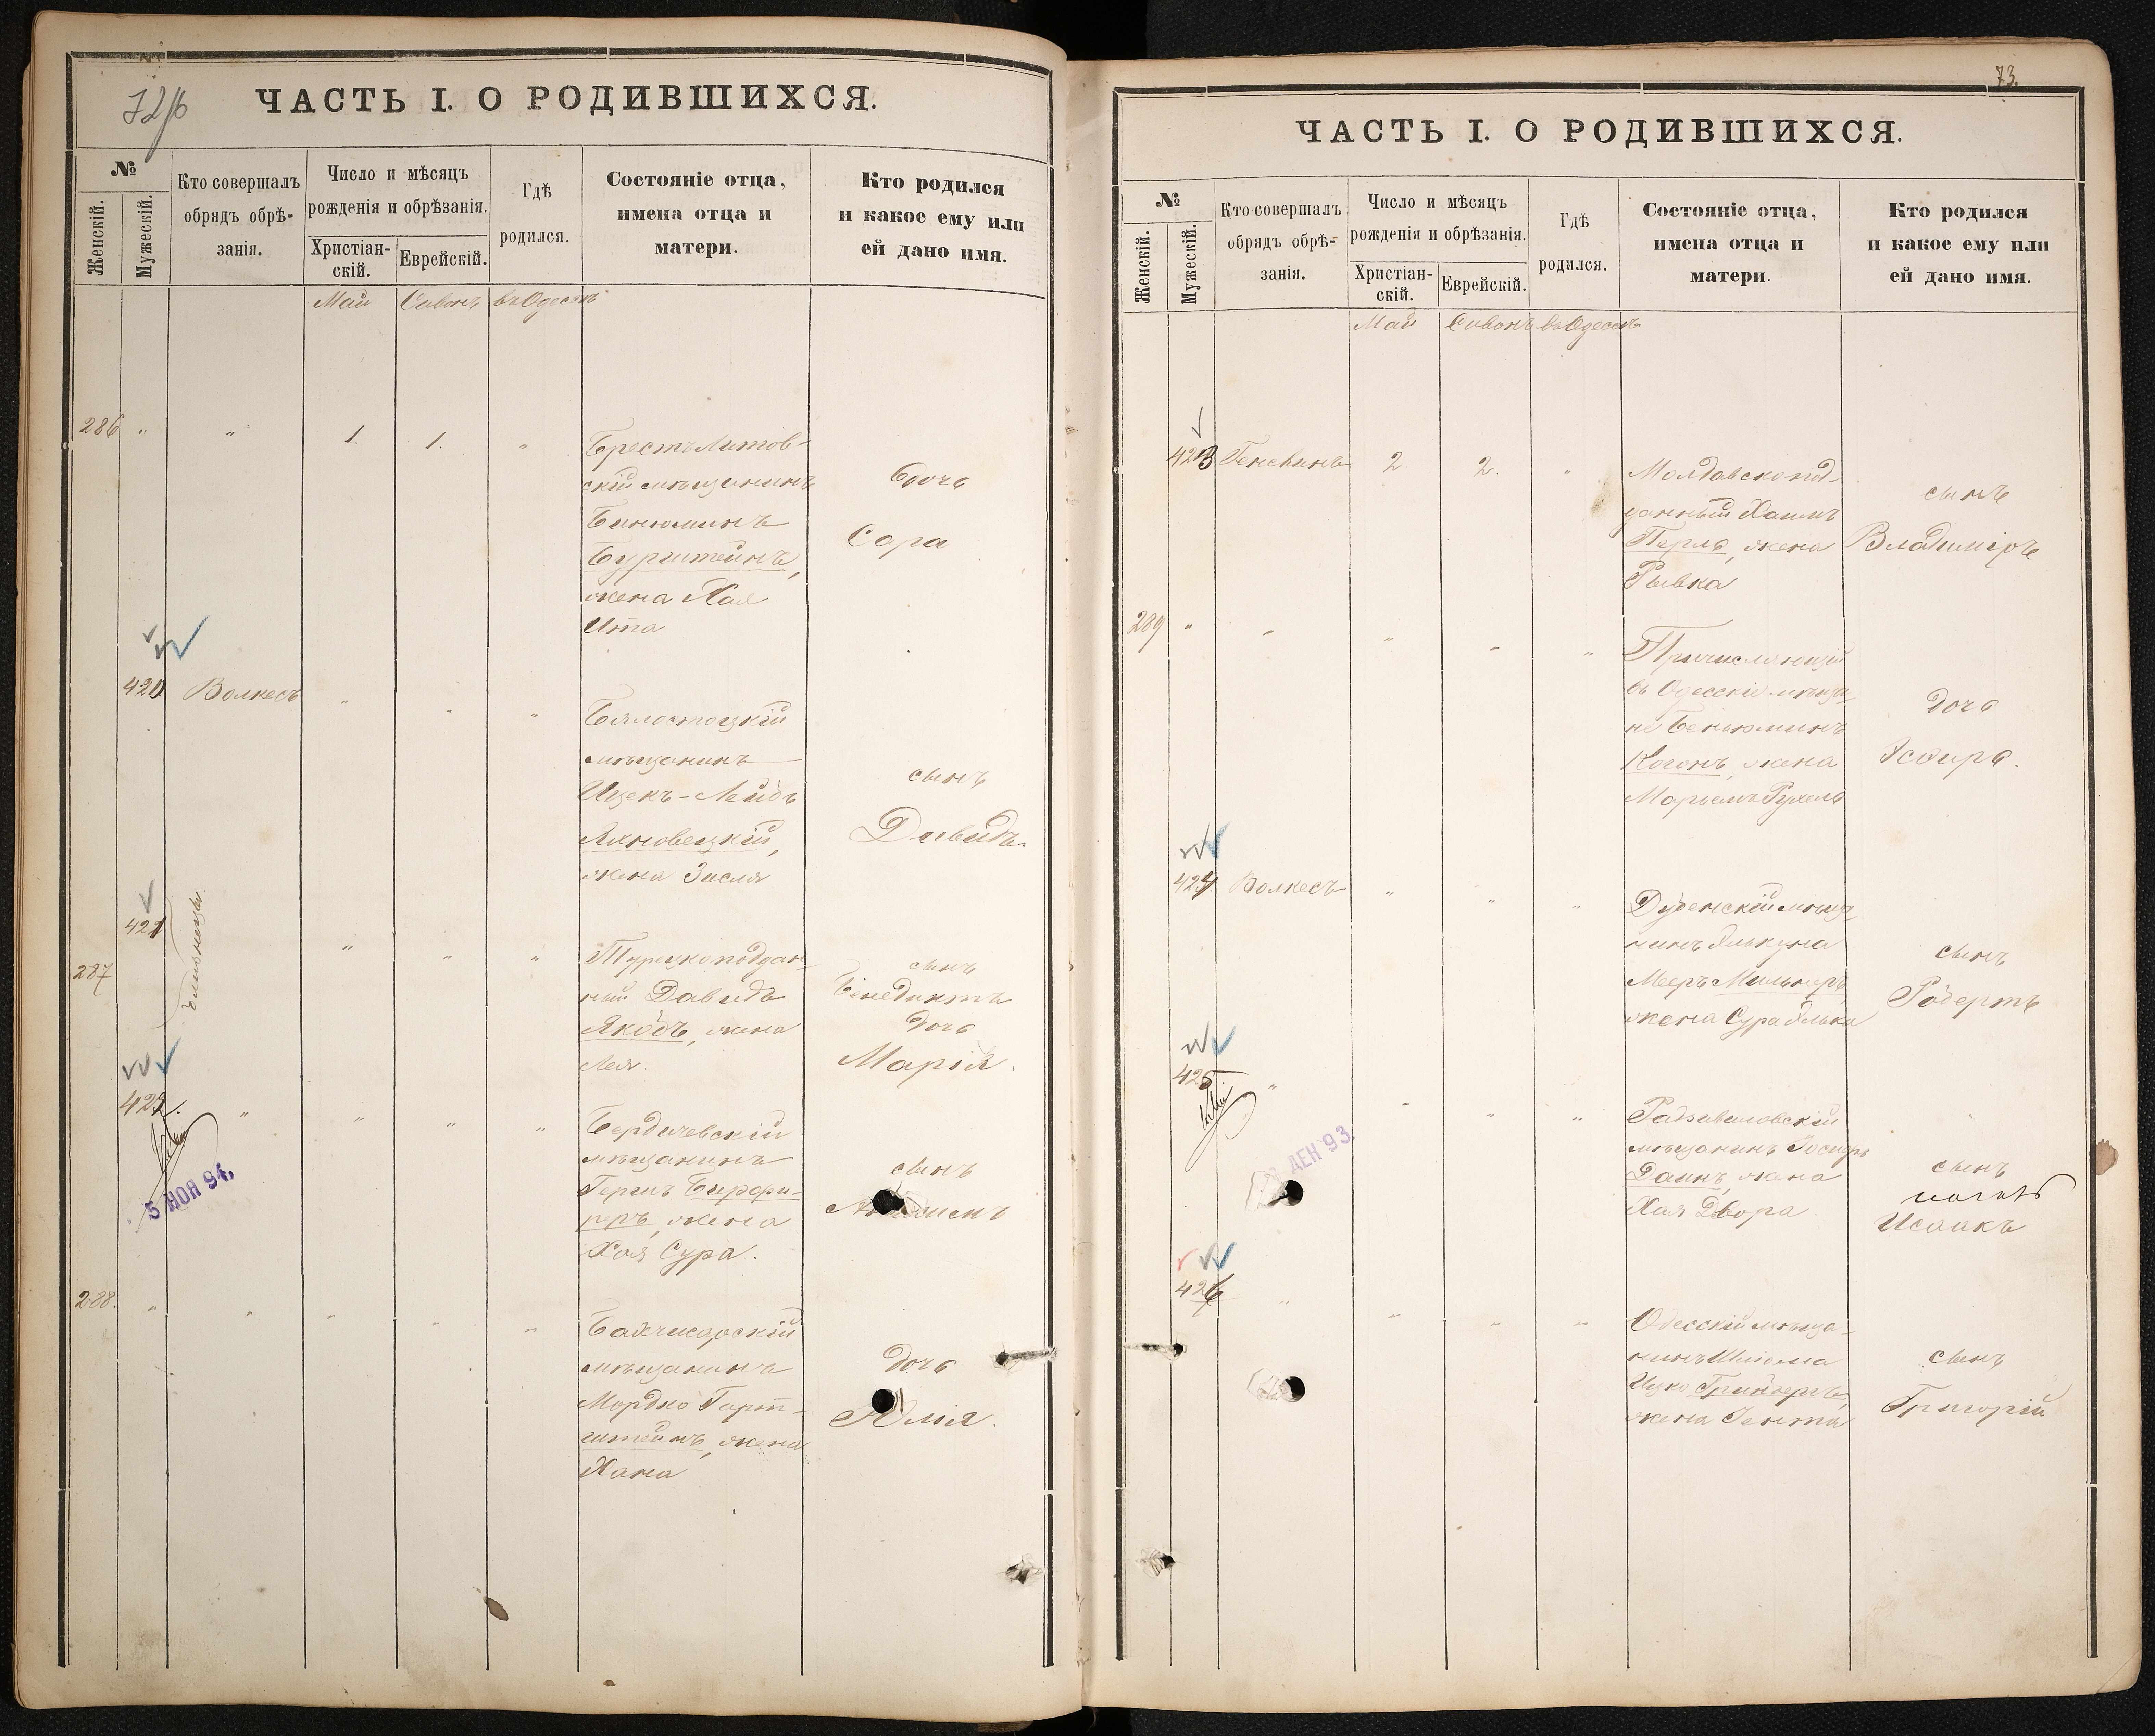 72/б
ЧАСТЬ I. О РОДИВШИХСЯ.
№
Женскій.
Мужескій.
Кто совершалъ
обрядъ обрѣ-
занія.
Число и мѣсяцъ
рожденія и обрѣзанія.
Христіан-
скій.
Еврейскій.
Гдѣ
родился.
Состояніе отца,
имена отца и
матери.
Кто родился
и какое ему или
ей дано имя.
Май Сивонъ въ Одессѣ
286 " " 1. 1. "
Брестъ Литов-
скій мѣщанинъ
Бинюминъ
Бурштейнъ,
жена Хая
Ита
дочь
Сара
420 Волкесъ " " "
Бѣлостоцкій
мѣщанинъ
Ицекъ-Лейбъ
Яхновецкій,
жена Зисля
сынъ
Давидъ
421
287
" " "
Турецкоподдан-
ный Давидъ
Якобъ, жена
Лея.
сынъ
Бенедиктъ
дочь
Марія.
422. " " " "
5 НОЯ 94.
Бердичевскій
мѣщанинъ
жена
Хая Сура.
сынъ
288. " " " " "
Бахчисарскій
мѣщанинъ
Мордко Гарт-
штейнъ, жена
Хана
дочь
Юлія.
73.
ЧАСТЬ I. О РОДИВШИХСЯ.
№
Женскій.
Мужескій.
Кто совершалъ
обрядъ обрѣ-
занія.
Число и мѣсяцъ
рожденія и обрѣзанія.
Христіан-
скій.
Еврейскій.
Гдѣ
родился.
Состояніе отца,
имена отца и
матери.
Кто родился
и какое ему или
ей дано имя.
Май Сивонъ въ Одессѣ
423 2 2. "
Молдавскопод-
данный Хаимъ
Перль, жена
Рывка
сынъ
Владиміръ
289 " " " " "
Причисляющійся
въ Одесскіе мѣща-
не Беньюминъ
Когонъ, жена
Марьемъ Рухель
дочь
Эсѳирь.
424 Волкесъ " " "
Дубенскій мѣща
нинъ
Мееръ Мильнеръ
жена Сура Элька
сынъ
Робертъ
425 " " " "
ДЕН 93.
Радзивиловскій
мѣщанинъ
Даинъ, жена
Хая Двора.
сынъ
Исаакъ
426 " " " "
Одесскій мѣща-
нинъ Шлёма
Ицко Гринбергъ,
жена Гентя
сынъ
Григорій